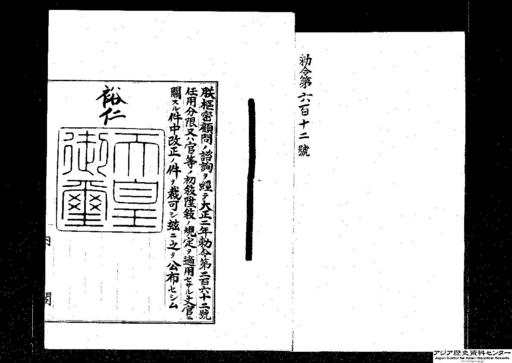 勅令第六百十二號
朕樞密顧問ノ諮詢ヲ經テ大正二年勅令第二百六十二號
任用分限又ハ官等ノ初敍陞敍ノ規定ヲ適用セサル文官ニ
關スル件中改正ノ件ヲ裁可シ玆ニ之ヲ公布セシム
裕仁
天皇
御璽
内閣
アジア歴史資料センター
Japan Center for Asian Historical Records